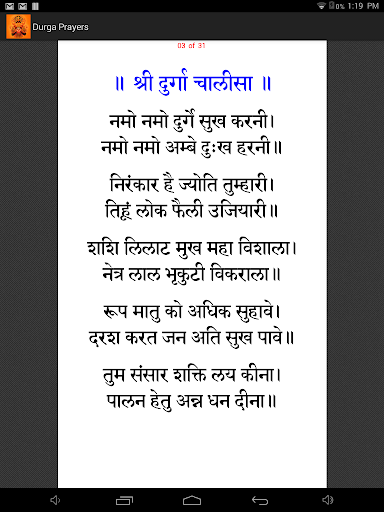 1:19 PM
Durga Prayers
03 of 31
॥ श्री दुर्गा चालीसा ॥
नमो नमो दुर्गे सुख करनी।
नमो नमो अम्बे दुःख हरनी॥
निरंकार है ज्योति तुम्हारी।
तिहूं लोक फैली उजियारी॥
शशि लिलाट मुख महा विशाला।
नेत्र लाल भृकुटी विकराला॥
रूप मातु को अधिक सुहावे।
दरश करत जन अति सुख पावे॥
तुम संसार शक्ति लय कीना।
पालन हेतु अन्न धन दीना॥